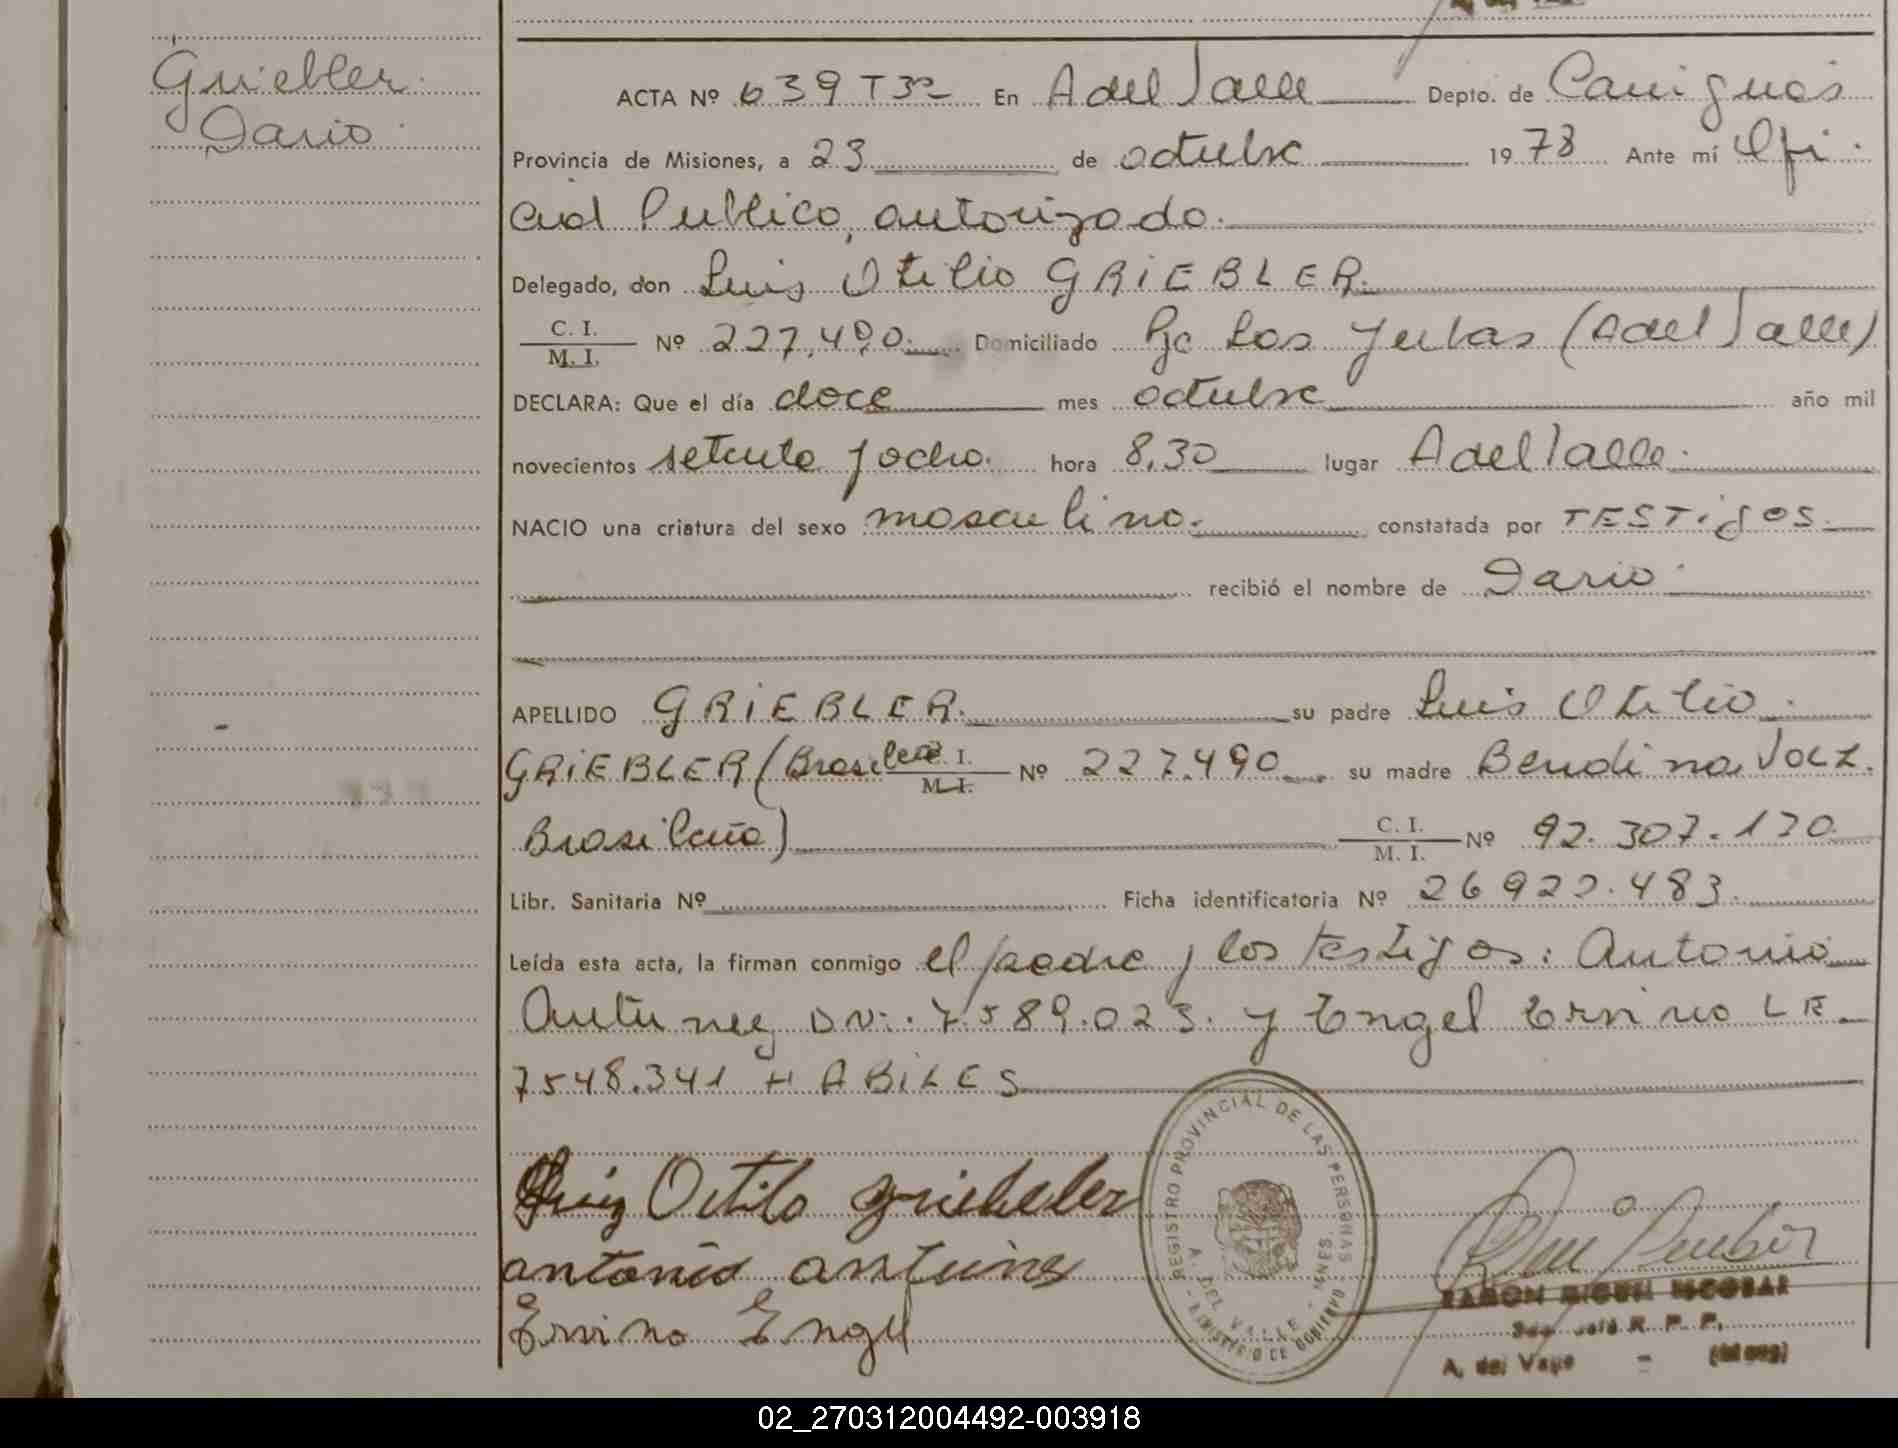 Griebler
Dario
ACTA Nº 639 T3º En A del Valle Depto. de Cainguás
Provincia de Misiones, a 23 de octubre 1978 Ante mí Ofi
cial Publico, autorizado.
Delegado, don Luis Otilio GRIEBLER.
C. I.
M. I. Nº 227.490. Domiciliado Pje Las Yerbas (A del Valle)
DECLARA: Que el día doce mes octubre año mil
novecientos setenta y ocho. hora 8,30 lugar A del Valle.
NACIO una criatura del sexo masculino. constatada por TESTigos.
recibió el nombre de Dario
APELLIDO GRIEBLER. su padre Luis Otilio
GRIEBLER (Brasileño) C. I.
M. I. Nº 227.490 su madre Bendina VOLZ
Brasileña) C. I.
M. I. Nº 92.307.170
Libr. Sanitaria Nº Ficha identificatoria Nº 26922.483.
Leída esta acta, la firman conmigo el padre y los testigos: Antonio
Antunez DNI: 7.589.023. y Engel Ervino LE
7548.341 HABILES
Luiz Octilo Griebeler
antonio antunes
Ervino Engel
REGISTRO PROVINCIAL DE LAS PERSONAS
A. DEL VALLE - MNES.
MINISTERIO DE GOBIERNO
RAMON MIGUEL ESCOBAR
R. P. P.
A. del Valle - (Mnes)
02_270312004492-003918